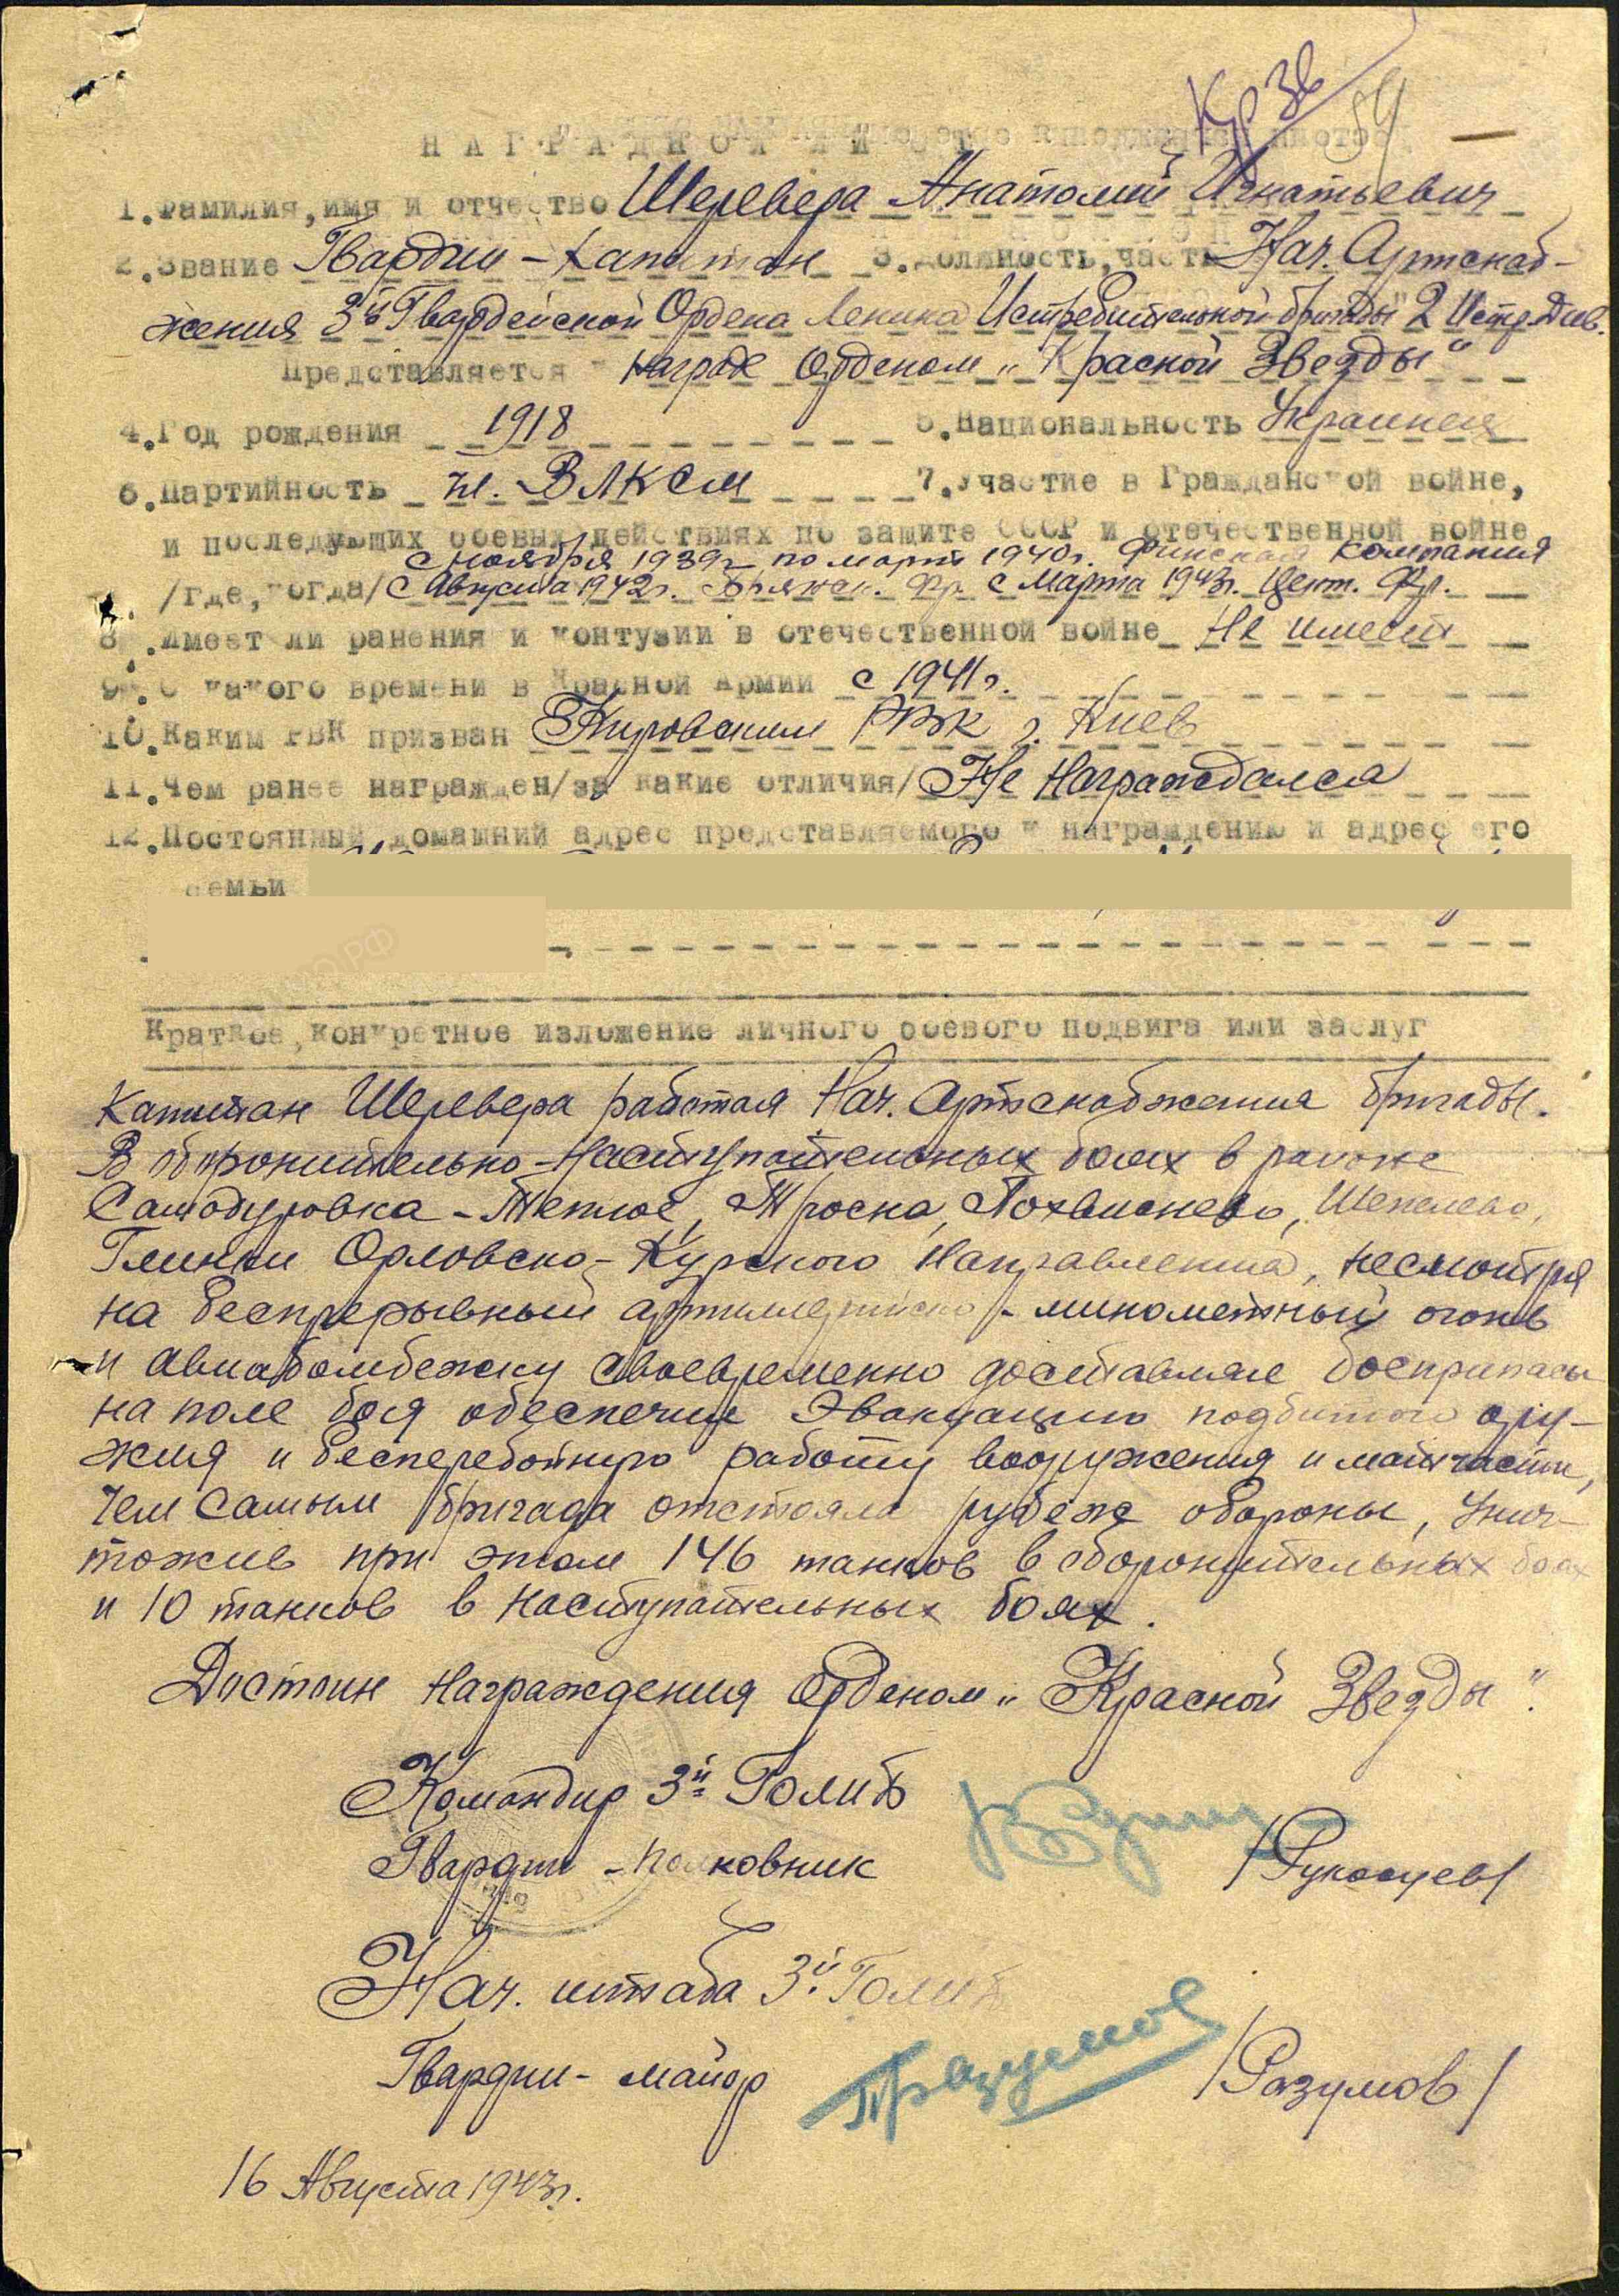 Кр Зв
59
НАГРАДНОЙ ЛИСТ
1. Фамилия, имя и отчество Шеревера Анатолий Игнатьевич
2. Звание Гвардии-капитан 3. Должность, часть Нач. Артснаб-
жения 3й Гвардейской Ордена Ленина Истребительной бригады 2 Истр. Див.
Представляется к награде Орденом „Красной Звезды"
4. Год рождения 1918 5. Национальность Украинец
6. Партийность чл. ВЛКСМ 7. Участие в Гражданской войне,
и последующих боевых действиях по защите СССР и отечественной войне
с ноября 1939г по март 1940г. Финская компания
/где, когда/ с Августа 1942г. Брянск. Фр. с Марта 1943г. Цент. Фр.
8. Имеет ли ранения и контузии в отечественной войне Не имеет
9. С какого времени в Красной Армии с 1941г.
10. Каким РВК призван Кировским РВК г. Киев
11. Чем ранее награжден/за какие отличия/ Не Награждался
12. Постоянный домашний адрес представляемого к награждению и адрес его
семьи
Краткое, конкретное изложение личного боевого подвига или заслуг
Капитан Шеревера работая Нач. Артснабжения бригады.
В оборонительно-Наступательных боях в районе
Самодуровка-Теплое, Троска, Похвиснево, Шепелево,
Глинки Орловско-Курского Направления, несмотря
на беспрерывный артиллерийско-минометный огонь
и авиабомбежку своевременно доставлял боеприпасы
на поле боя обеспечил Эвакуацию подбитого ору-
жия и бесперебойную работу вооружения и матчасти,
чем самым бригада отстояла рубеж обороны, Унич-
тожив при этом 146 танков в оборонительных боях
и 10 танков в наступательных боях.
Достоин Награждения Орденом „Красной Звезды".
Командир 3й Голиб
Гвардии-полковник /Рукосуев/
Нач. штаба 3й Голиб
Гвардии-майор Разумов /Разумов/
16 Августа 1943г.